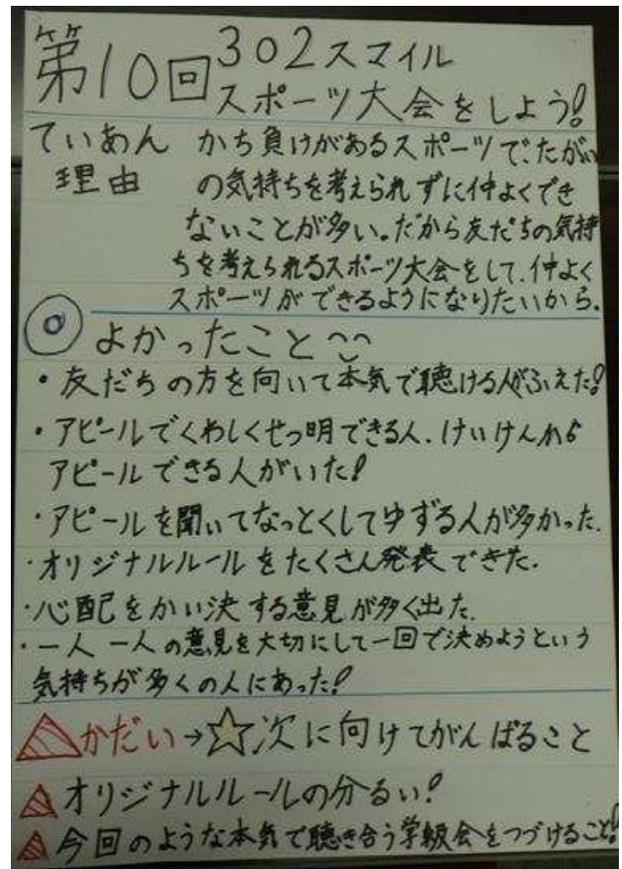 第10回 302スマイル
スポーツ大会をしよう!
ていあん かち負けがあるスポーツで、たがい
理由 の気持ちを考えられずに仲よくでき
ないことが多い。だから友だちの気持
ちを考えられるスポーツ大会をして、仲よく
スポーツができるようになりたいから。
◎よかったこと
・友だちの方を向いて本気で聴ける人がふえた!
・アピールでくわしくせつ明できる人、けいけんから
アピールできる人がいた!
・アピールを聞いてなっとくしてゆずる人が多かった。
・オリジナルルールをたくさん発表できた。
・心配をかい決する意見が多く出た。
・一人一人の意見を大切にして一回で決めようという
気持ちが多くの人にあった!
△かだい→☆次に向けてがんばること
△オリジナルルールの分るい!
△今回のような本気で聴き合う学級会をつづけること!